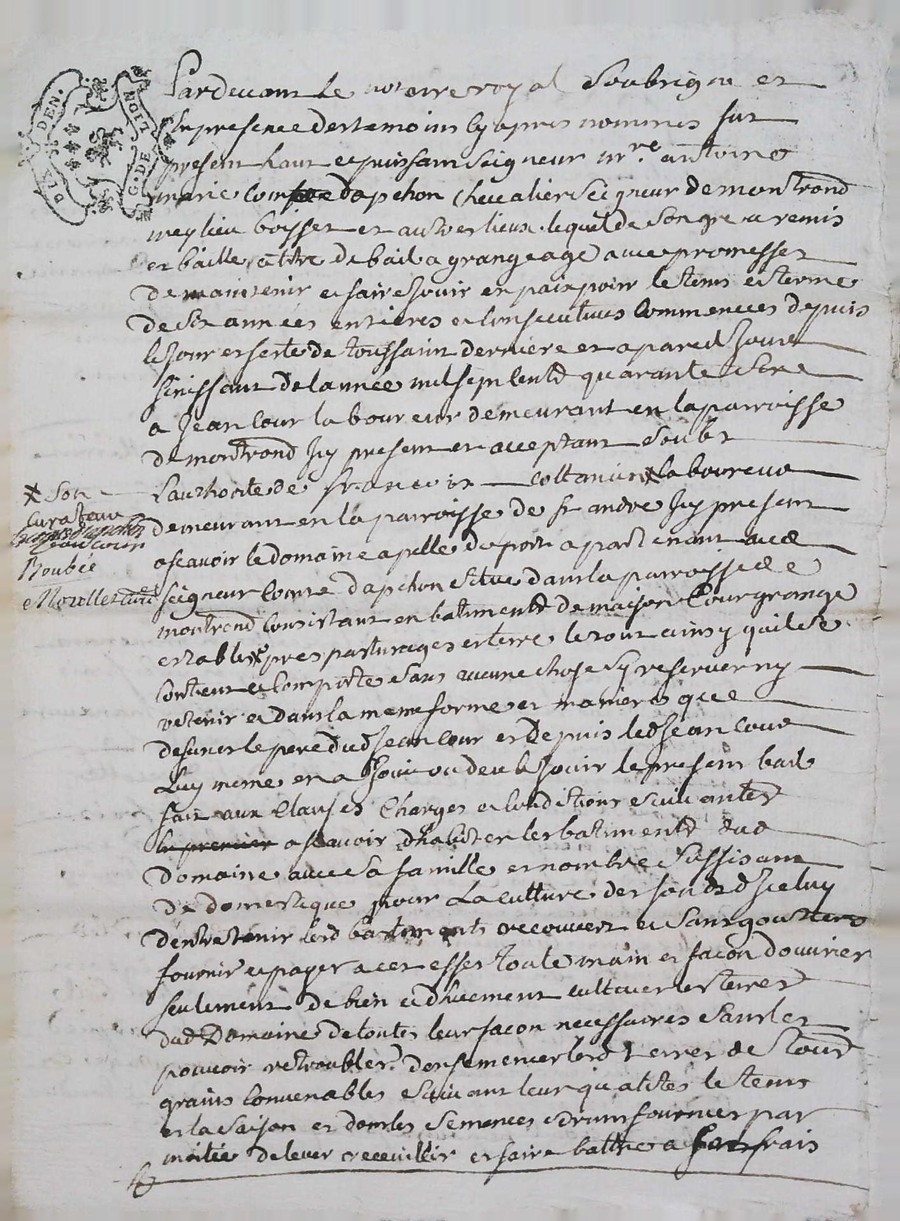 DIX DEN.
G. DE LION
Pardevant le notaire royal Soubsigné et
En presence des temoins cy apres nommés fut
present haut et puissant seigneur mre antoine
marie comte dapchon chevalier seigneur de montrond
meylieu boisset et autres lieux. lequel de son gré a remis
et baillé a titre de bail a grangeage avec promesses
de maintenir et faire jouir en paix pour le tems et terme
de six années entieres et consecutives commencés depuis
le jour et feste de toussaint derniere et a pareil jour
finissant de lannée mil sept cent quarante
a jean cour laboureur demeurant en la parroisse
de montrond icy present et acceptant soubs
lauthorité de francois * laboureur
demeurant en la parroisse de st andré icy present
* Son
Curateur
jean cour
Roubie
a scavoir le domaine apellé du port apartenant aud
seigneur comte dapchon situé dans la parroisse de
montrond consistant en batiments de maison cour grange
estables pres pasturages et terre le tout ainsy quil se
contient et comporte sans aucune chose sy reserver ny
retenir et dans la meme forme et maniere que
defunct le pere dud jean cour et depuis led jean cour
luy meme en a joui ou deu le jouir le present bail
fait aux clauses charges et conditions suivantes
a scavoir dhabiter les batiments dud
domaine avec sa famille et nombre suffisant
de domestique pour la culture des fonds diceluy
dentretenir lesd batiments recouvert et sans goutiere
fournir et payer a cet effet toute main et facon douvrier
seulement de bien et dhuement cultiver les terres
dud Domaine de toutes leur facon necessaires sans les
pouvoir retroubler. densemencer lesd terres de tour
grains convenables suivant leur qualités le tems
et la saison et dont les semences seront fournies par
moitié de lever receuillir et faire battre a ses frais